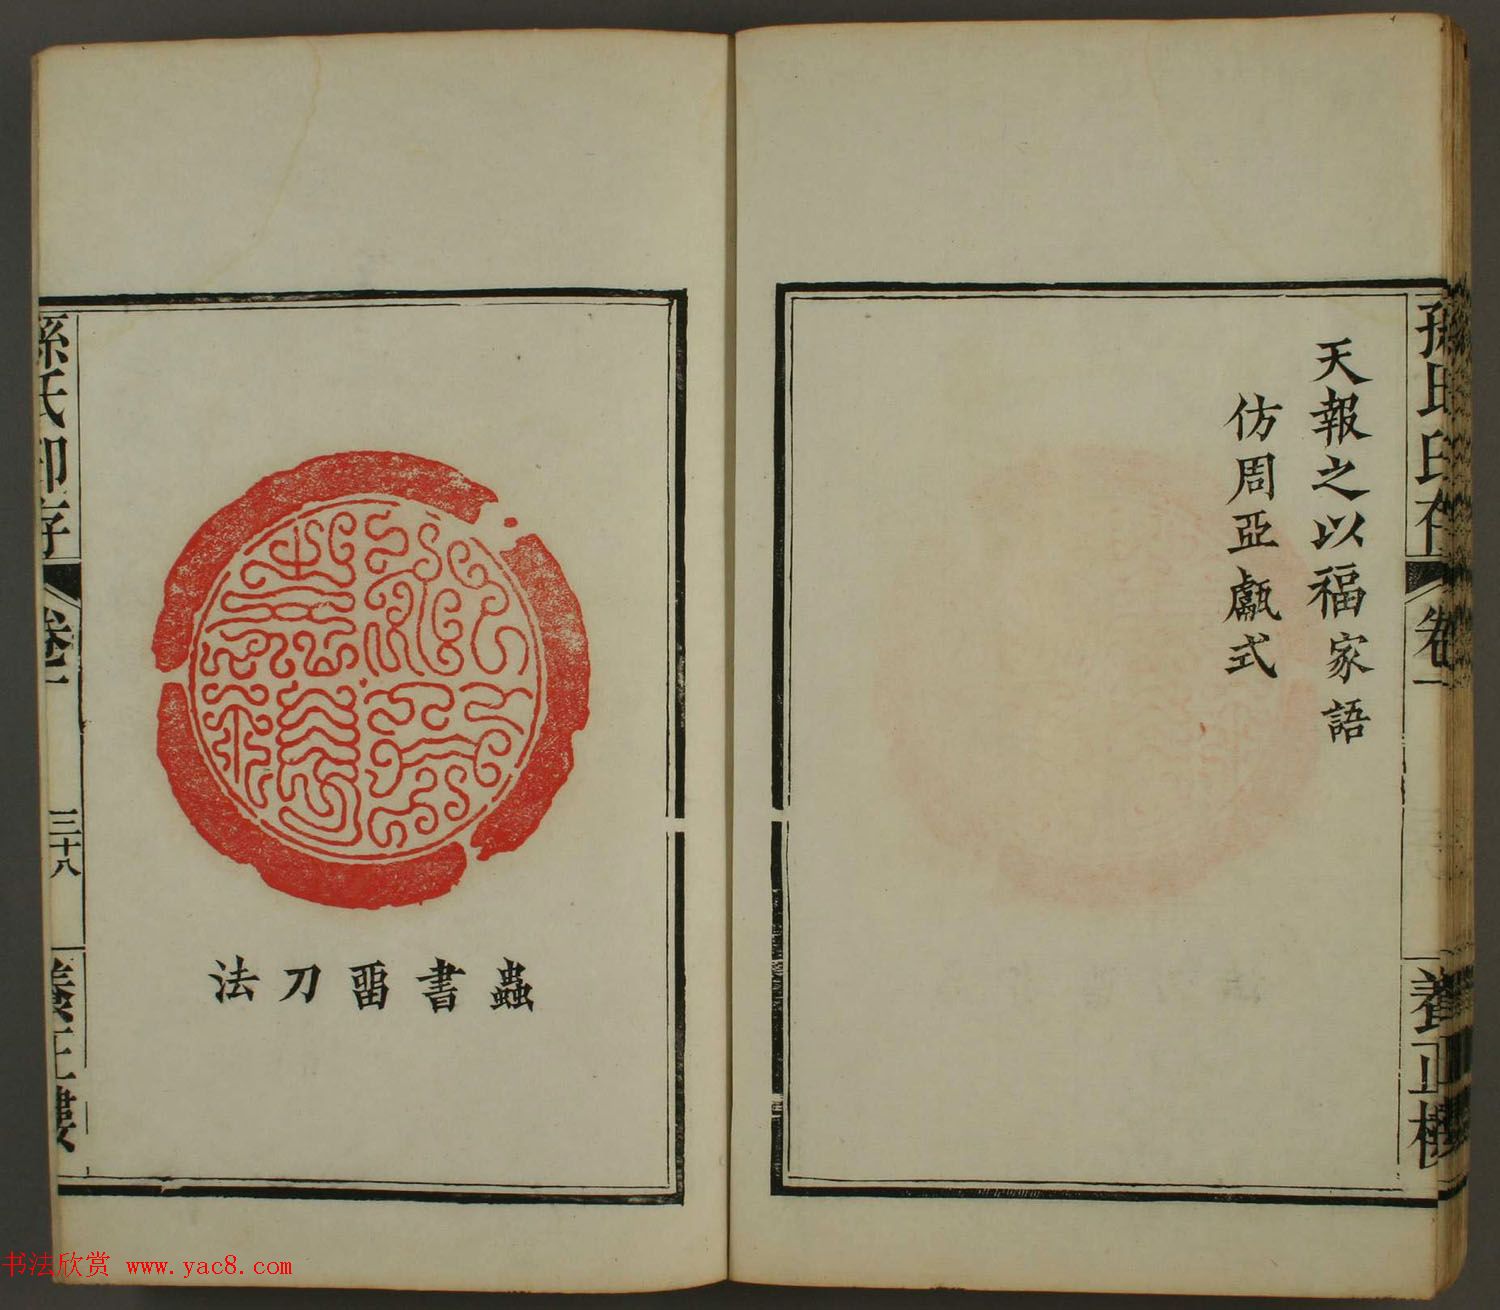 孫氏印存
卷一
養正樓
天報之以福家語
仿周亞甗式
蟲書畱刀法
孫氏印存
卷一
三十八
養正樓
书法欣赏 www.yac8.com